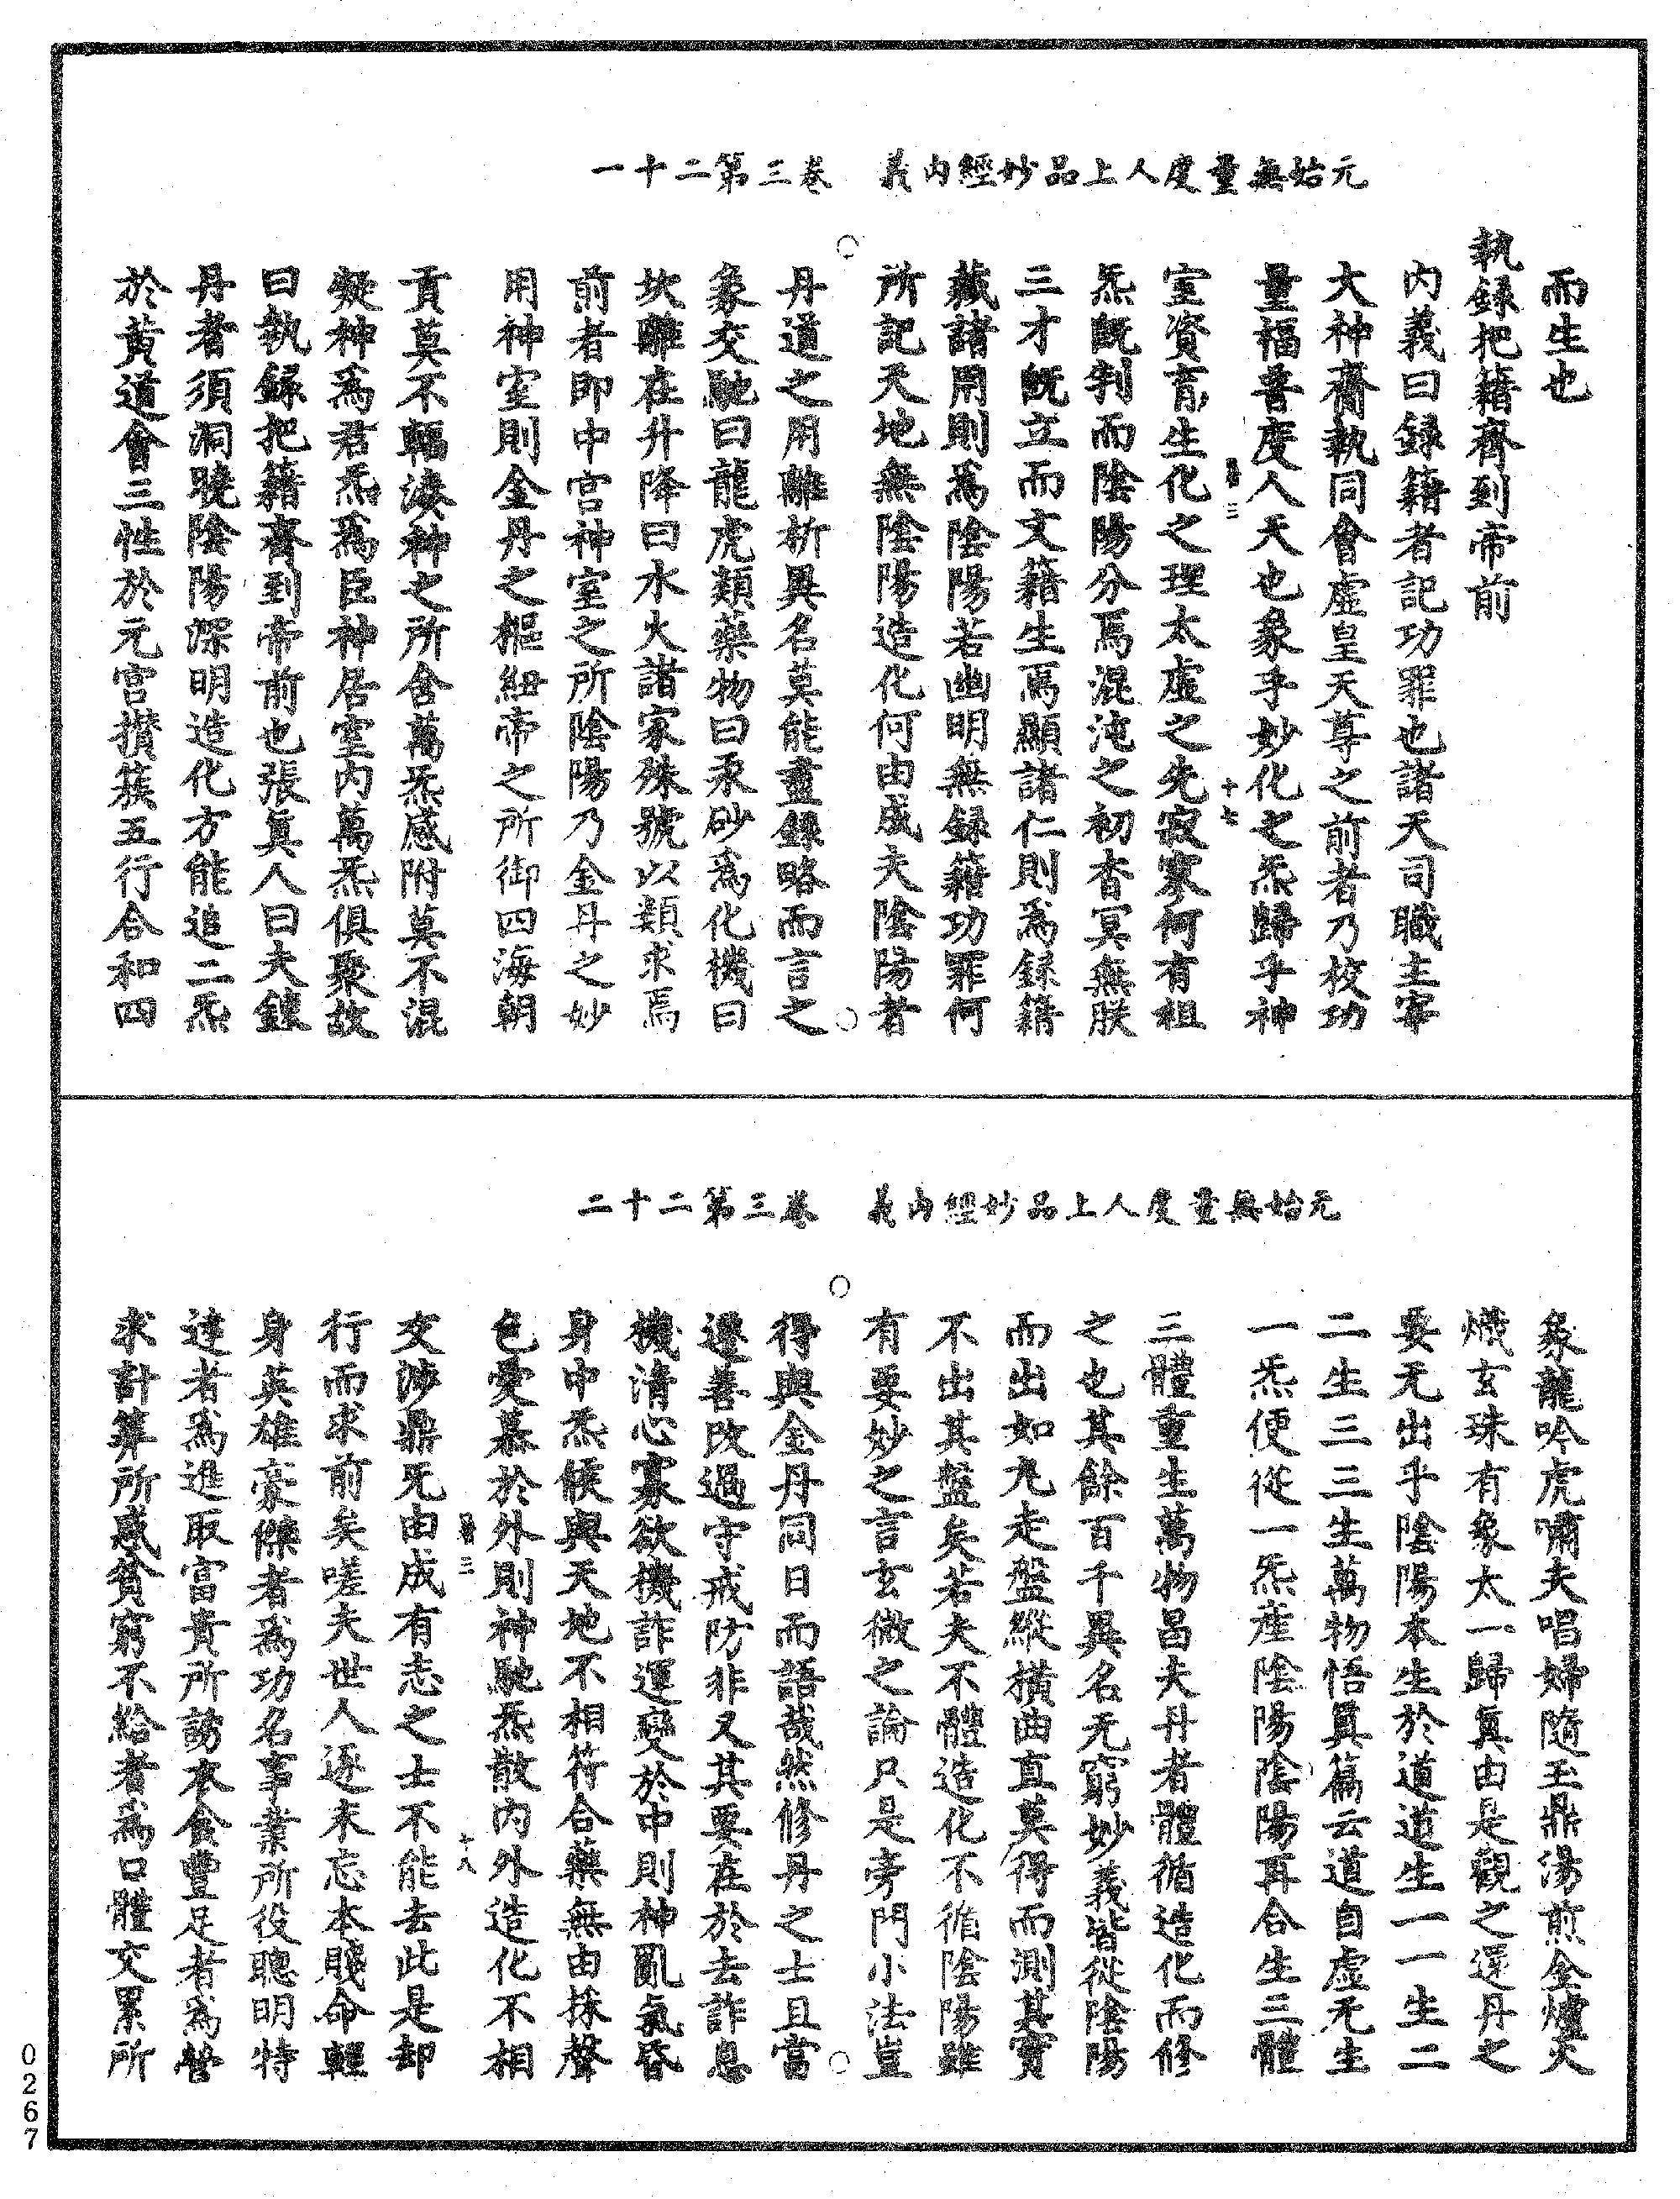 元始無量度人上品妙經內義　卷三第二十一
而生也
執録把籍齊到帝前
內義曰録籍者記功罪也諸天司職主宰
大神齊執同會虛皇天尊之前者乃校功
量福普度人天也象乎妙化之炁歸乎神
室資育生化之理太虛之先寂寥何有祖
炁既判而陰陽分焉混沌之初杳冥無朕
三才既立而文籍生焉顯諸仁則爲録籍
藏諸用則爲陰陽若幽明無録籍功罪何
所記天地無陰陽造化何由成夫陰陽者
丹道之用離析異名莫能盡録略而言之
象交馳曰龍虎類藥物曰汞砂爲化機曰
坎離在升降曰水火諸家殊號以類求焉
前者即中宮神室之所陰陽乃金丹之妙
用神室則金丹之樞紐帝之所御四海朝
貢莫不輻湊神之所舍萬炁感附莫不混
凝神爲君炁爲臣神居室內萬炁俱聚故
曰執録把籍齊到帝前也張眞人曰夫鍊
丹者須洞曉陰陽深明造化方能追二炁
於黃道會三性於元宮攢簇五行合和四
元始無量度人上品妙經內義　卷三第二十二
象龍吟虎嘯夫唱婦隨玉鼎湯煎金爐火
熾玄珠有象太一歸眞由是觀之還丹之
要无出乎陰陽本生於道道生一一生二
二生三三生萬物悟眞篇云道自虛无生
一炁便從一炁産陰陽陰陽再合生三體
三體重生萬物昌夫丹者體循造化而修
之也其餘百千異名无窮妙義皆從陰陽
而出如丸走盤縱橫曲直莫得而測其實
不出其盤矣若夫不體造化不循陰陽雖
有要妙之言玄微之論只是旁門小法豈
得與金丹同日而語哉然修丹之士且當
遷善改過守戒防非又其要在於去詐息
機清心寡欲機詐運變於中則神亂氣昏
身中炁候與天地不相符合藥無由採聲
色愛慕於外則神馳炁散內外造化不相
交涉鼎无由成有志之士不能去此是卻
行而求前矣嗟夫世人逐末忘本賤命輕
身英雄豪傑者爲功名事業所役聰明特
達者爲進取富貴所誘衣食豐足者爲營
求計筭所惑貧窮不給者爲口體交累所
0267